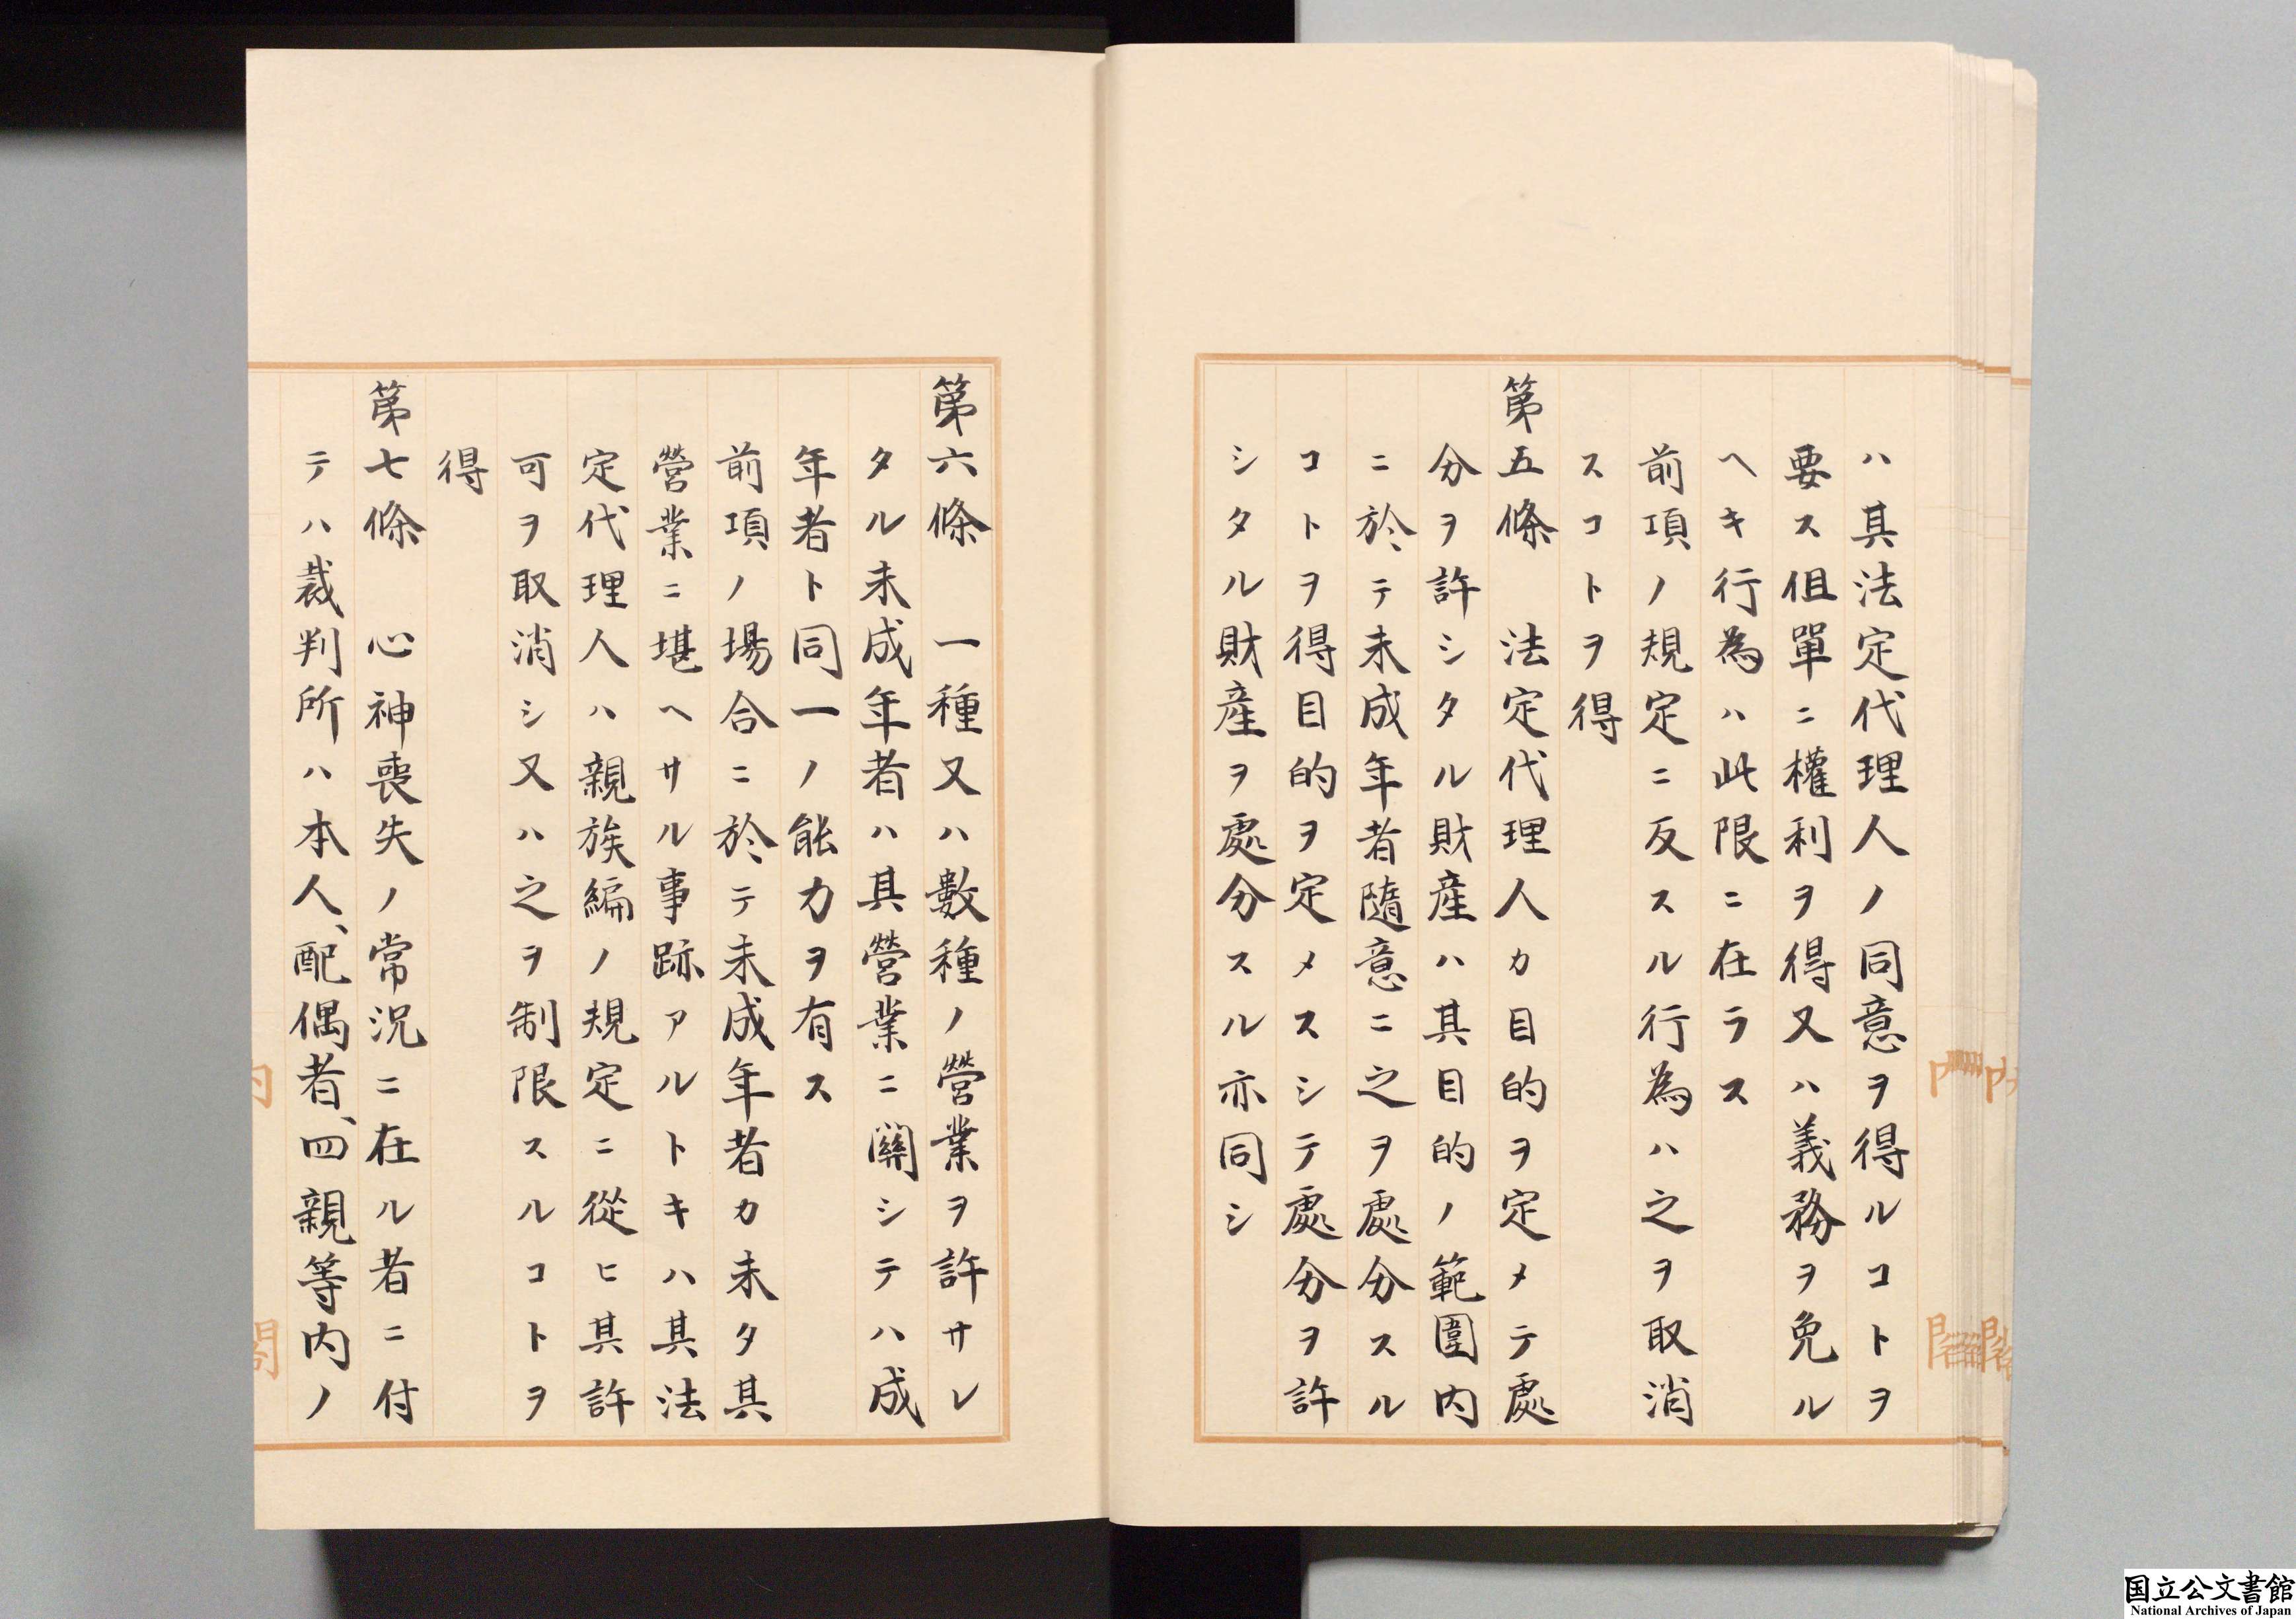 ハ其法定代理人ノ同意ヲ得ルコトヲ
要ス但單ニ權利ヲ得又ハ義務ヲ免ル
ヘキ行為ハ此限ニ在ラス
前項ノ規定ニ反スル行為ハ之ヲ取消
スコトヲ得
第五條　法定代理人カ目的ヲ定メテ處
分ヲ許シタル財産ハ其目的ノ範圍内
ニ於テ未成年者隨意ニ之ヲ處分スル
コトヲ得目的ヲ定メスシテ處分ヲ許
シタル財産ヲ處分スル亦同シ
第六條　一種又ハ數種ノ營業ヲ許サレ
タル未成年者ハ其營業ニ關シテハ成
年者ト同一ノ能力ヲ有ス
前項ノ場合ニ於テ未成年者カ未タ其
營業ニ堪ヘサル事跡アルトキハ其法
定代理人ハ親族編ノ規定ニ從ヒ其許
可ヲ取消シ又ハ之ヲ制限スルコトヲ
得
第七條　心神喪失ノ常況ニ在ル者ニ付
テハ裁判所ハ本人、配偶者、四親等内ノ
内閣
国立公文書館
National Archives of Japan